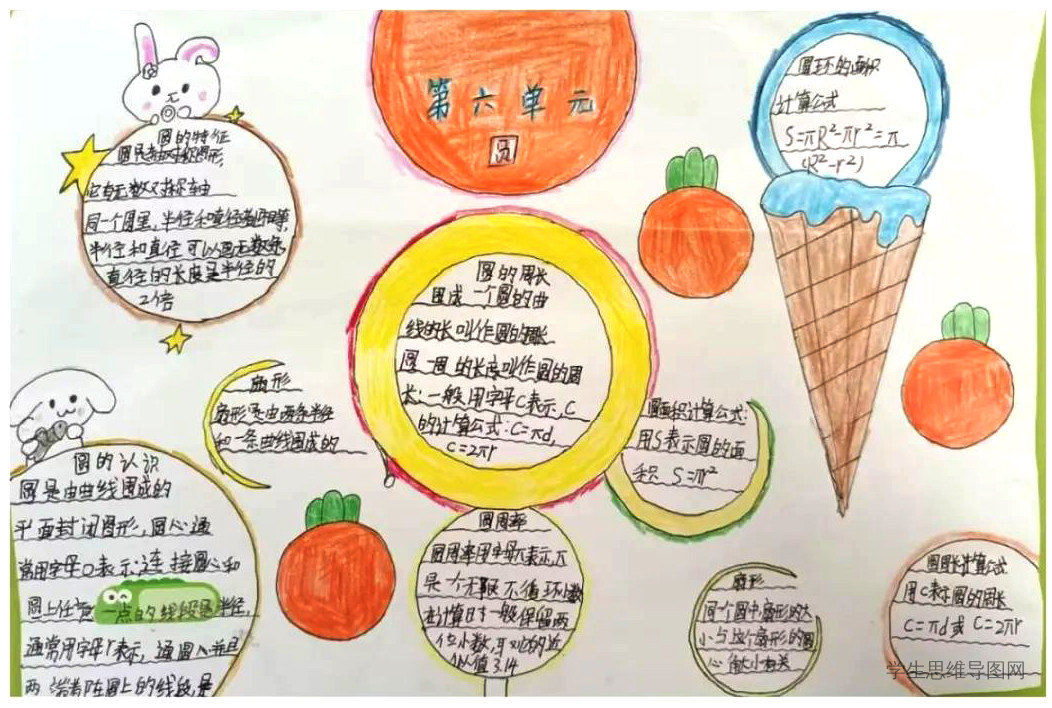 第六单元
圆
圆的特征
圆是轴对称图形,
它有无数条对称轴
同一个圆里,半径和直径都相等,
半径和直径可以画无数条
直径的长度是半径的
2倍
圆环的面积
计算公式
S=πR²-πr²=π
(R²-r²)
圆的周长
围成一个圆的曲
线的长叫作圆的周长
圆一周的长度叫作圆的周
长:一般用字母C表示,C
的计算公式:C=πd,
C=2πr
扇形
扇形是由两条半径
和一条曲线围成的
圆面积计算公式:
用S表示圆的面
积 S=πr²
圆的认识
圆是由曲线围成的
平面封闭图形,圆心通
常用字母O表示;连接圆心和
圆上任意一点的线段是半径,
通常用字母r表示,通圆心并且
两端都在圆上的线段,是
圆周率
圆周率用字母π表示,π
是一个无限不循环小数
在计算时一般保留两
位小数,取π的近
似值3.14
扇形
同一个圆中,扇形的大
小与这个扇形的圆
心角大小有关
圆周长计算公式
用C表示圆的周长
C=πd或C=2πr
学生思维导图网